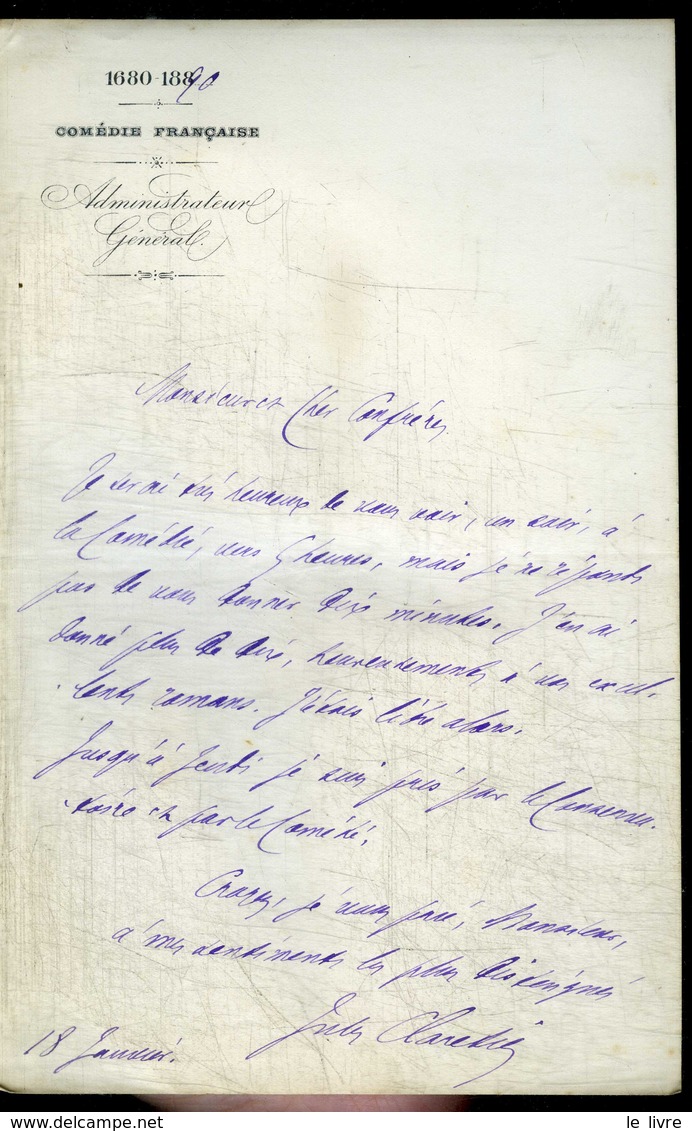 1680-1890
COMÉDIE FRANÇAISE
Administrateur
Général.
Monsieur et Cher Confrère,
Je serai très heureux de vous voir, un soir, à
la Comédie, vers 5 heures, mais je ne réponds
pas de vous donner dix minutes. J'en ai
donné plus de dix, heureusement, à vos excel-
lents romans. J'étais libre alors.
Jusqu'à Jeudi je suis pris par le Conserva-
toire et par la Comédie.
Croyez, je vous prie, Monsieur,
à mes sentiments les plus distingués
Jules Claretie
18 Janvier.
le livre